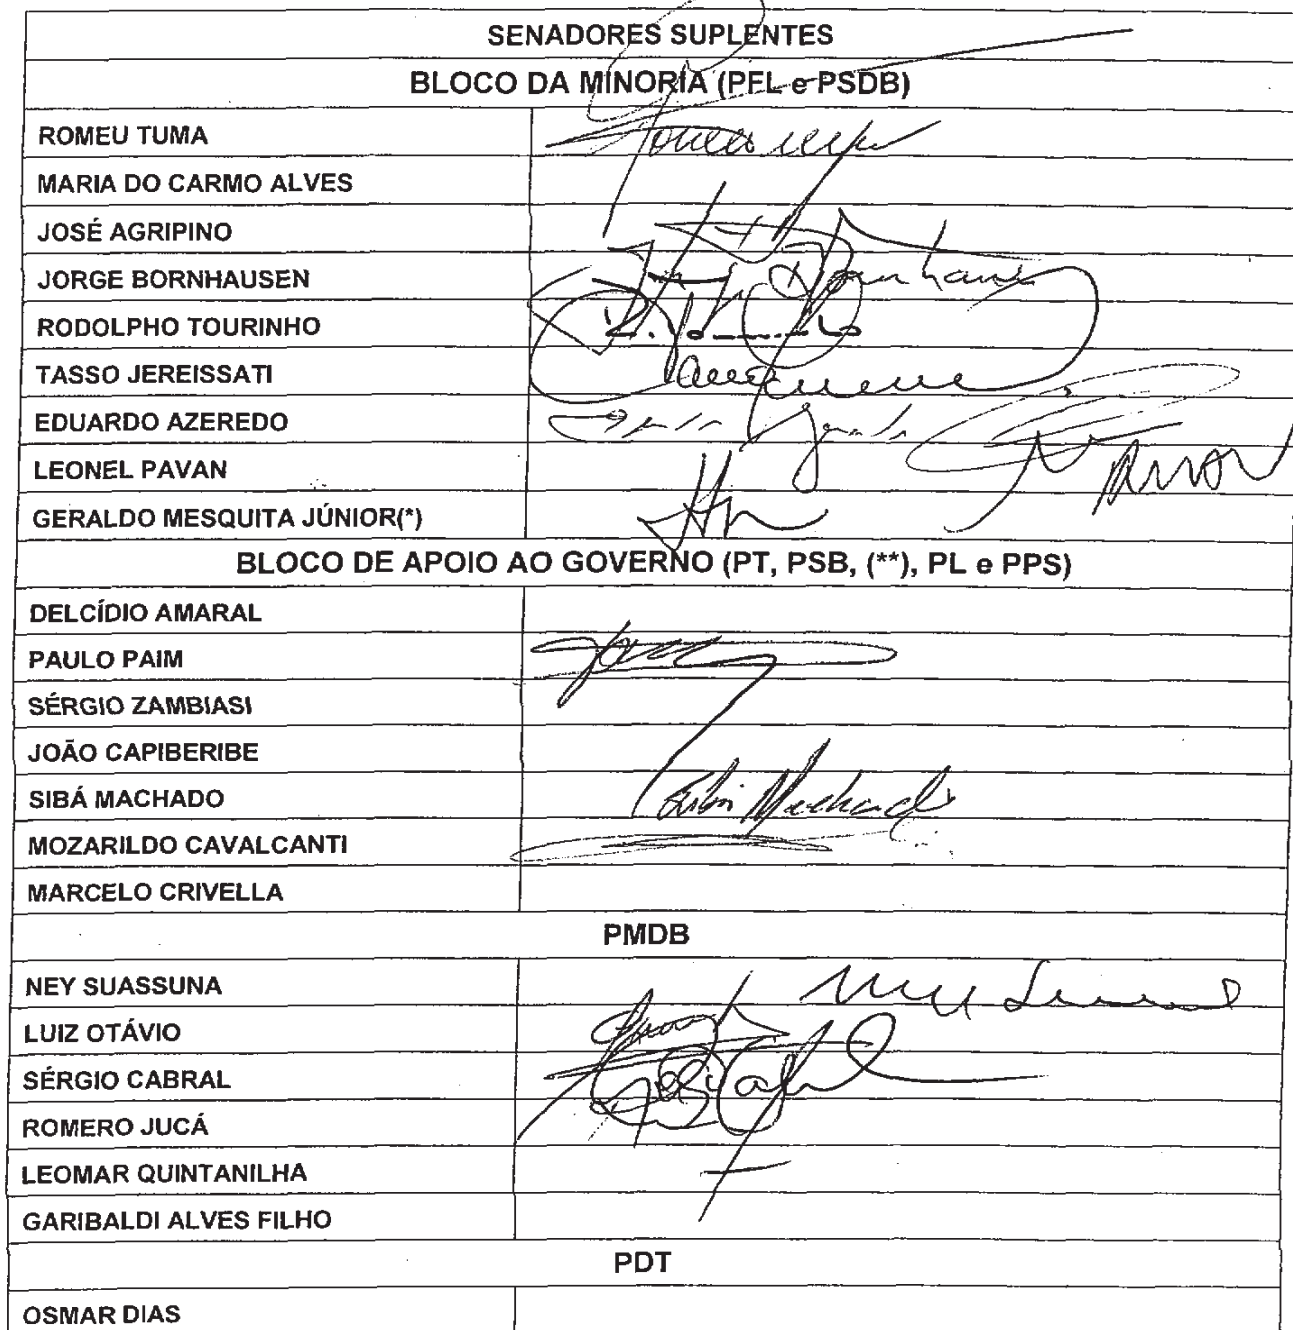 SENADORES SUPLENTES
BLOCO DA MINORIA (PFL e PSDB)
ROMEU TUMA
MARIA DO CARMO ALVES
JOSÉ AGRIPINO
JORGE BORNHAUSEN
RODOLPHO TOURINHO
TASSO JEREISSATI
EDUARDO AZEREDO
LEONEL PAVAN
GERALDO MESQUITA JÚNIOR(*)
BLOCO DE APOIO AO GOVERNO (PT, PSB, (**), PL e PPS)
DELCÍDIO AMARAL
PAULO PAIM
SÉRGIO ZAMBIASI
JOÃO CAPIBERIBE
SIBÁ MACHADO
MOZARILDO CAVALCANTI
MARCELO CRIVELLA
PMDB
NEY SUASSUNA
LUIZ OTÁVIO
SÉRGIO CABRAL
ROMERO JUCÁ
LEOMAR QUINTANILHA
GARIBALDI ALVES FILHO
PDT
OSMAR DIAS